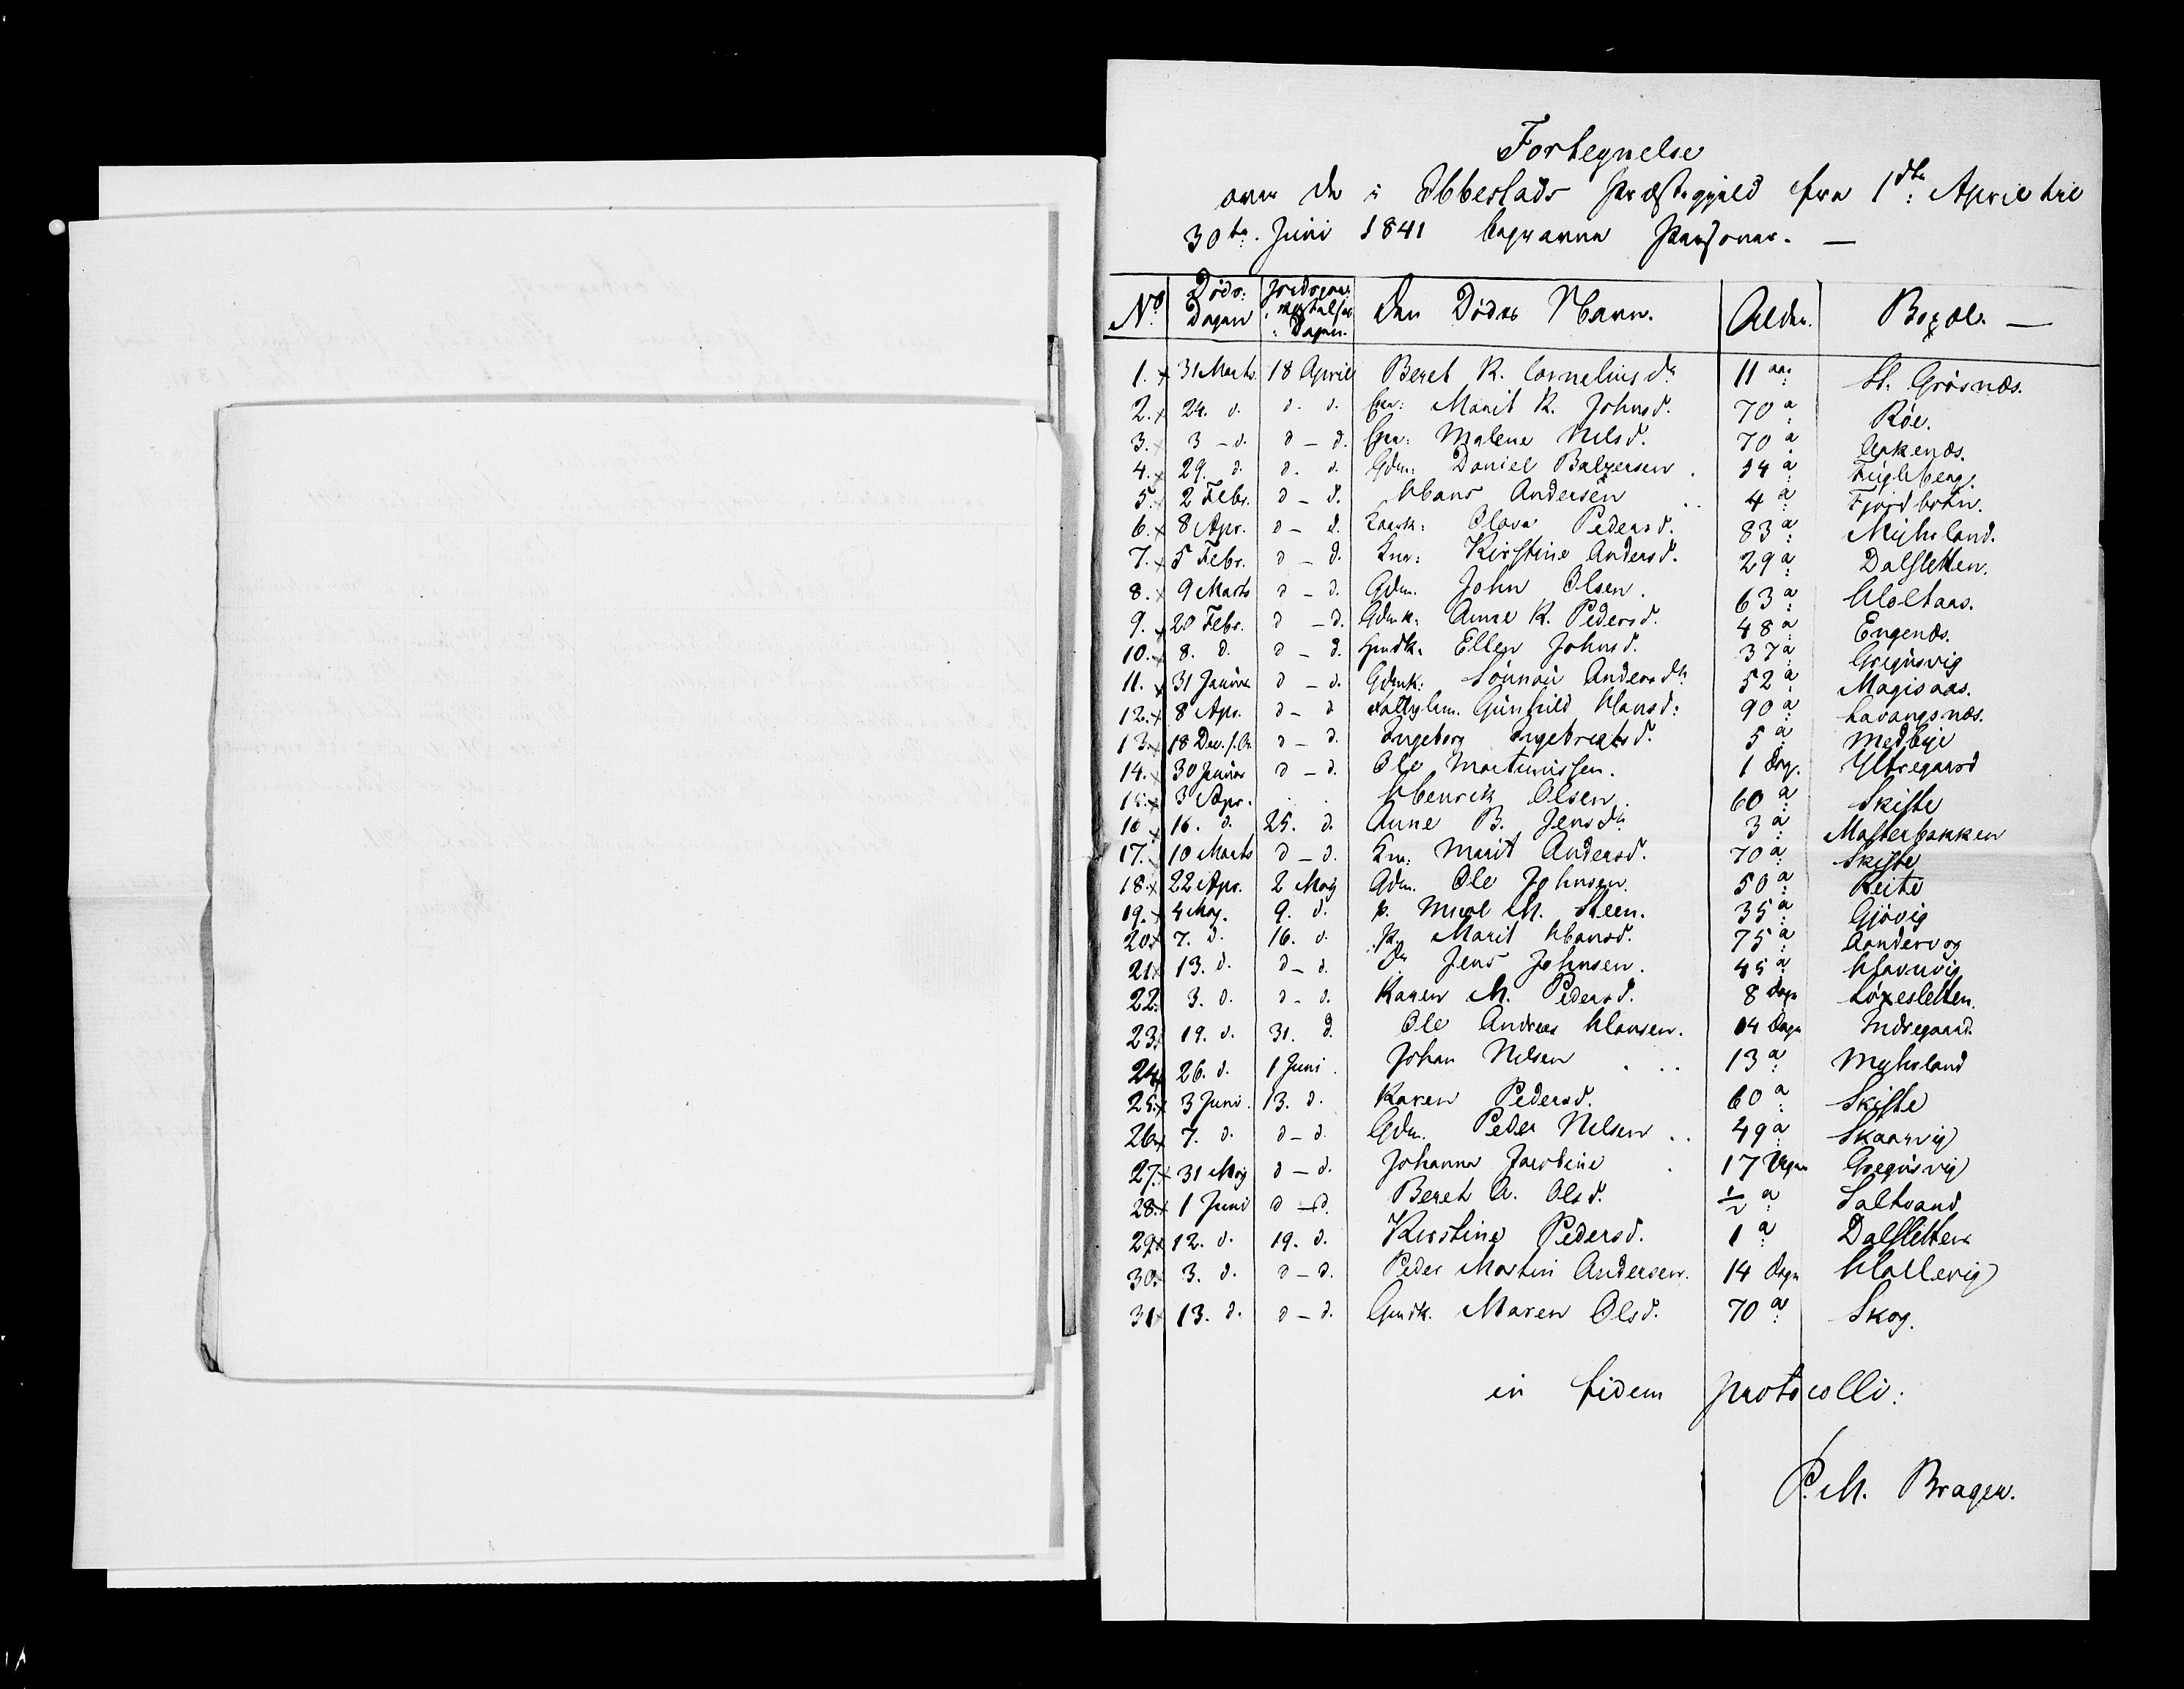 Fortegnelse
over de i Ibbestads Præstegjeld fra 1ste: April til
30te. Juni 1841 begravne Personer. —
No. Døds: Dagen Jordspaa: kastelses: Dagen Den Dødes Navn. Alder. Bopæl. —
1. x 31 Marts 18 April Beret K. Corneliusdr. 11 aar St. Grösnæs.
2. x 24. d. d. d. Marit K. Johnsd. 70 a: Röe.
3. x 3 - d. d - d. Malene Nilsd. 70 a: Aakenæs.
4. x 29. d. d. d. Gdm: Daniel Balzersen. 54 a: Fugleberg.
5. x 2 Febr. d - d. Hans Andersen .. 4 a: Fjordbotn.
6. x 8 Apr. d - d. Olava Pedersd. 83 a: Myhrland.
7. x 5 Febr. d - d. Kirstine Andersd. 29 a: Dalsletten.
8. x 9 Marts d - d. Gdm. John Olsen. 63 a: Holtaas.
9. x 20 Febr. d - d. Gdmk: Anne K. Pedersd. 48 a: Engenæs.
10. x 8. d. d - d. Ellen Johnsd. 37 a: Gregusvig
11. x 31 Januar d - d. Gdmk: Sönnöv Andersdr. 52 a: Magisaas.
12. x 8 Apr. d - d Fattiglem. Gunhild Hansd: 90 a: Lavangsnæs.
13. x 18 Dec. f. A. d - d. Ingeborg Ingebregtsd. 5 a: Medbye
14. x 30 Januar d - d. Ole Martinussen. 1 Dag. Ytregaard
15. x 3 Apr. . . Henrik Olsen. 60 a: Skifte
16 x 16. d. 25. d. Anne B. Jensdr. 3 a: Masterbakken
17. x 10 Marts d - d. Marit Andersd. 70 a: Skifte
18. x 22 Apr. 2 Maj Gdm. Ole Johnsen. 50 a: Reite
19. x 4 Maj. 9. d. M. Steen. 35 a: Gjövig
20. x 7. d. 16. d. K. Marit Hansd. 75 a: Aandervog
21 x 13. d. d - d. Jens Johnsen. 45 a: Havnvig
22. 3. d. d - d. Karen M. Pedersd. 8 Dage Löxesletten.
23. 19. d. 31. d. Ole Andreas Hansen. 14 Dage Indregaard.
24 x 26. d. 1 Juni. Johan Nilsen . .. 13 a: Myhrland
25. x 3 Juni. 13. d. Karen Pedersd. 60 a: Skifte
26 x 7. d. d - d. Gdm. Peder Nilsen .. 49 a: Skaarvig
27. x 31 Maj d - d. Johanna Jacobine . 17 Uger Gregusvig
28. x 1 Juni d - d. Beret A. Olsd. ½ a: Saltvand
29 x 12. d. 19. d. Kirstine Pedersd. 1 a: Dalsletten
30. 3. d. d - d. Peder Martin Andersen. 14 Dage Hallevig
31 x 13. d. d - d. Maren Olsd. 70 a: Skog.
in fidem protocolli:
P. M. Bragen.